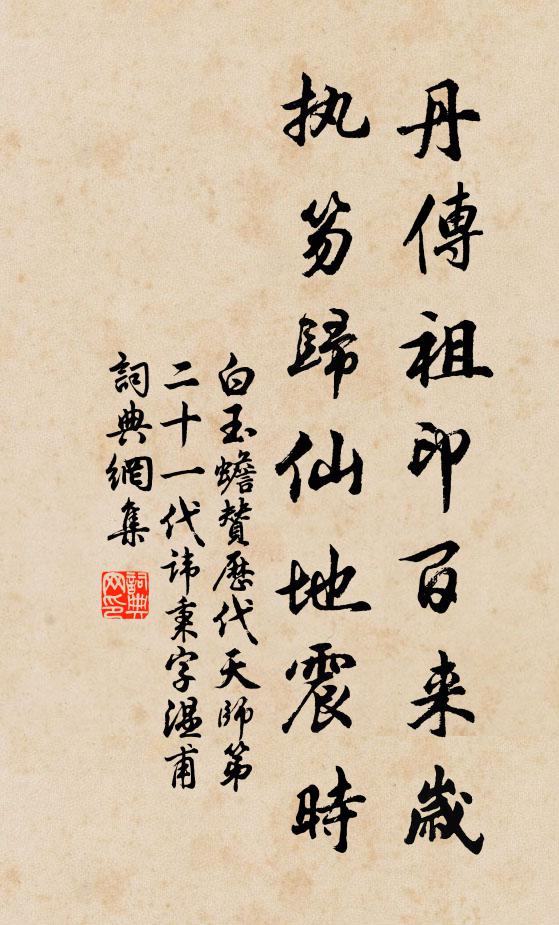 丹傳祖印百来歲
执笏歸仙地震時
白玉蟾贊歷代天師第
二十一代諱秉字溫甫
詞典網集
詞典
网印